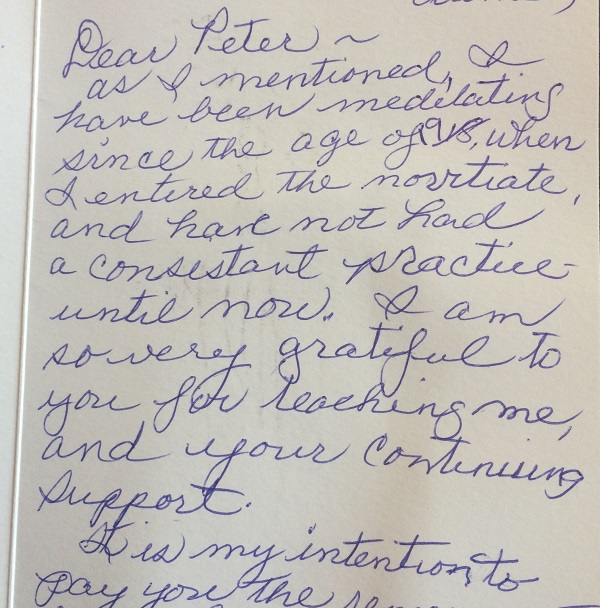 Dear Peter ~
as I mentioned, I
have been meditating
since the age of 18, when
I entered the novitiate,
and have not had
a consistant practice
until now. I am
so very grateful to
you for teaching me,
and your continuing
support.
It is my intention to
pay you the